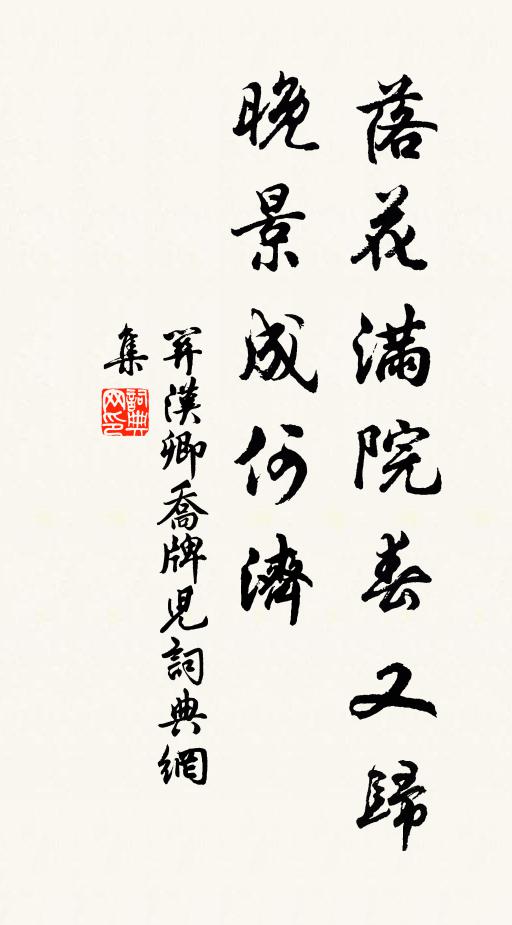 落花滿院春又歸
晚景成何濟
關漢卿喬牌兒詞典網
集
詞典
网印